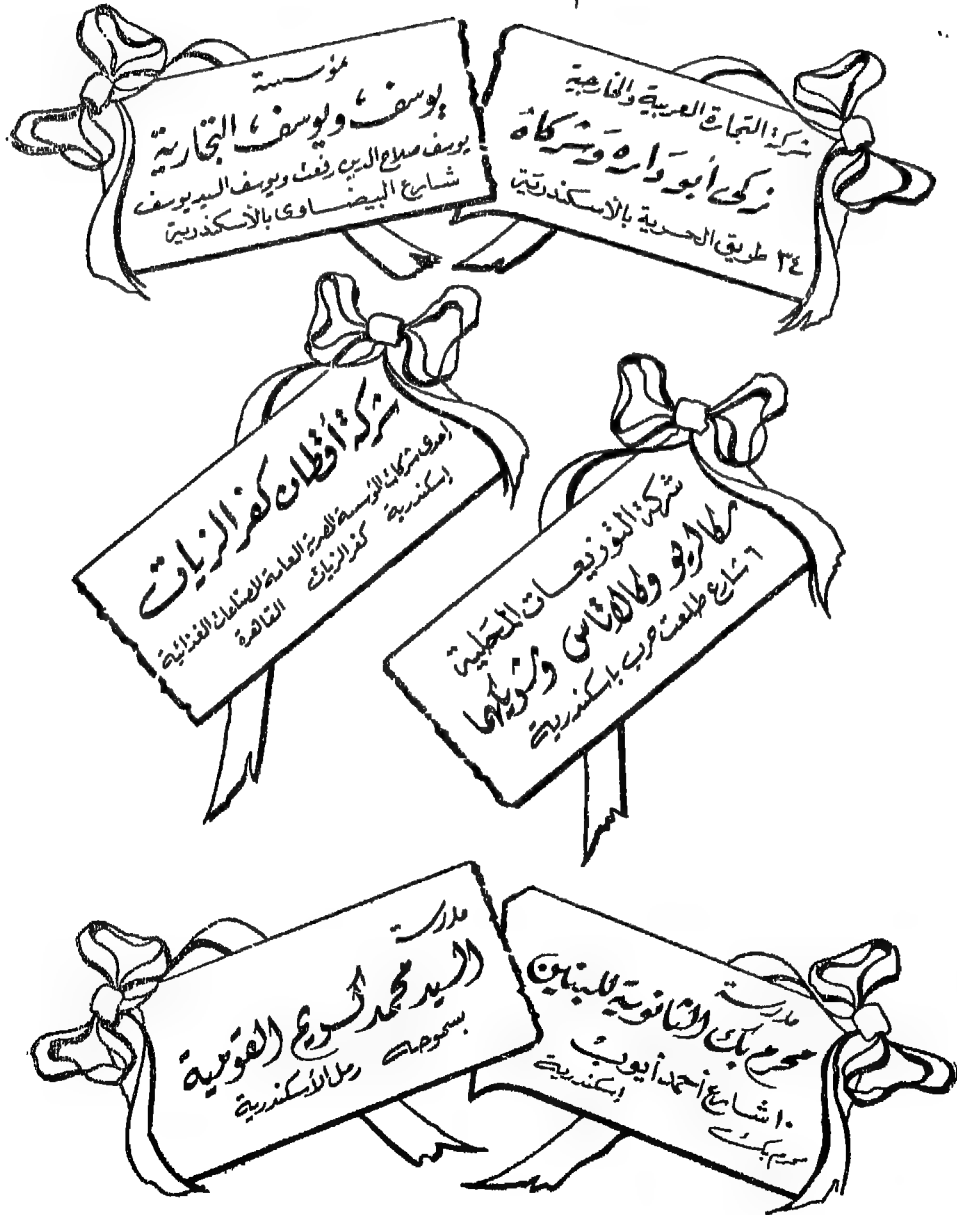 شركة التجارة العربية والخارجية
زكى أبو دارة وشركاه
٣٤ طريق الحرية بالأسكندرية
مؤسسة
يوسف، ويوسف، التجارية
يوسف صلاح الدين رفعت ويوسف السيد يوسف
شارع البيضاوى بالأسكندرية
شركة التوزيعات المحلية
وكالاتاس وشريكهما
٦ شارع طلعت حرب باسكندرية
شركة أقطان كفر الزيات
إحدى شركات المؤسسة المصرية العامة للصناعات الغذائية
إسكندرية كفر الزيات القاهرة
مدرسة
محرم بك الثانوية للبنين
١٠ شارع أحمد أيوب
محرم بك إسكندرية
مدرسة
السيد محمد كريم القومية
بسموحه رمل الأسكندرية